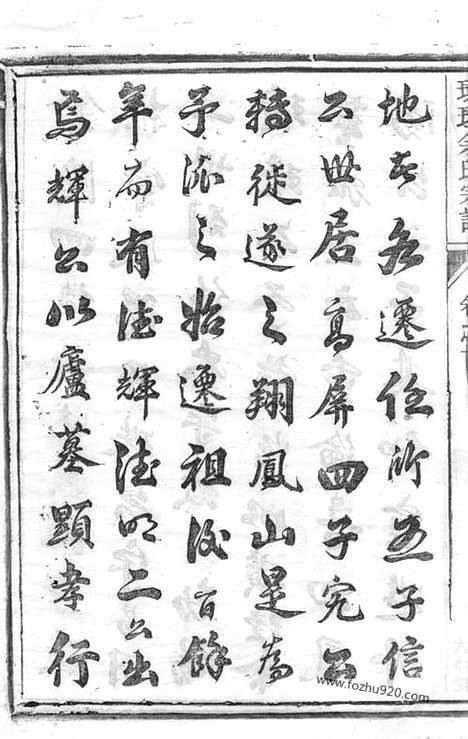 地者各遷任所五子信
公世居高屏四子完公
轉徙遂之翔鳳山是為
予派之始遷祖後百餘
年而有德輝德明二公出
焉輝公以廬墓顯孝行
www.fozhu920.com